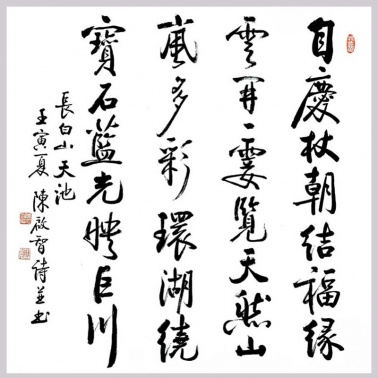 自慶杖朝結福緣
雲開霎覽天然山
嵐多彩環湖繞
寶石藍光映巨川
長白山天池
壬寅夏 陳啟智詩並書